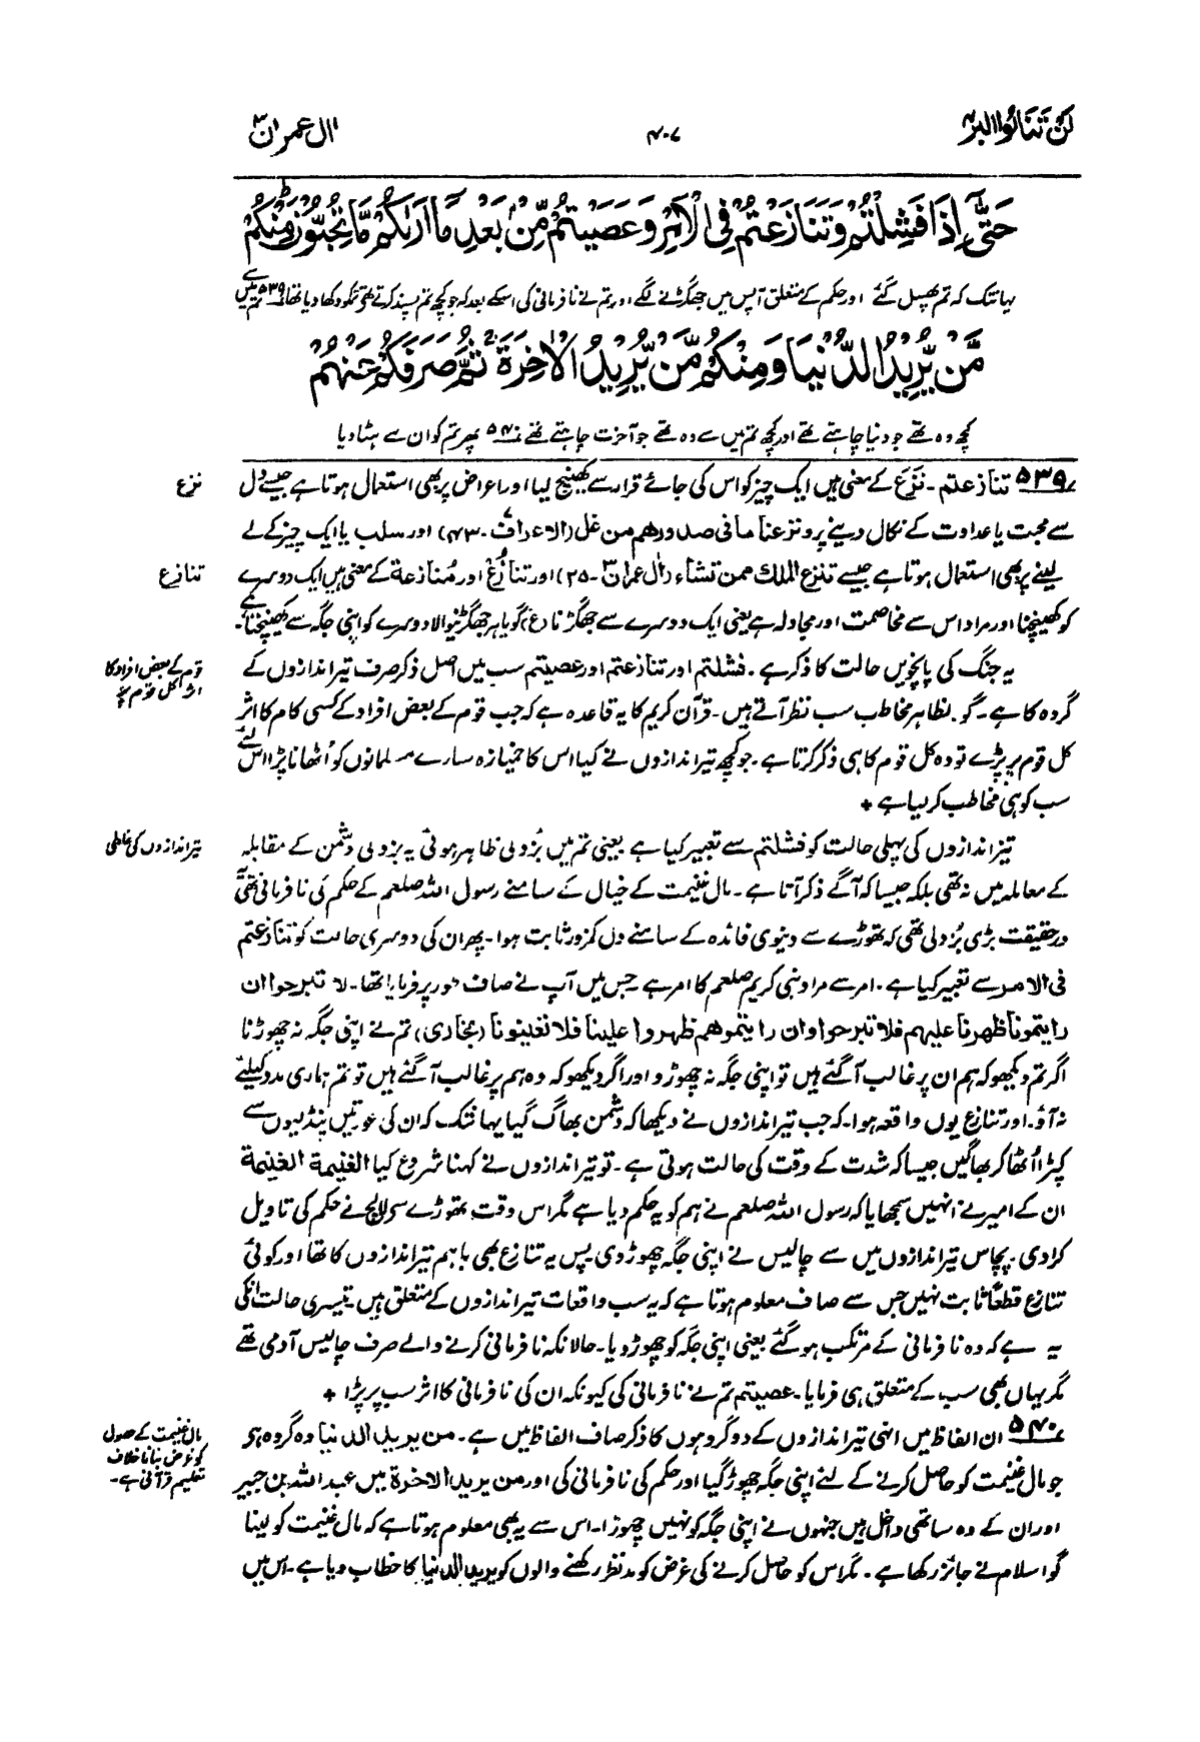 لن تنالوا البر ۴
۴۰۷
اٰل عمران ۳
حَتّٰۤى اِذَا فَشِلْتُمْ وَتَنَازَعْتُمْ فِی الْاَمْرِ وَعَصَيْتُمْ مِّنْۢ بَعْدِ مَاۤ اَرٰىكُمْ مَّا تُحِبُّوْنَ ؕ مِنْكُمْ
یہانتک کہ تم پھسل گئے اور حکم کے متعلق آپس میں جھگڑنے لگے اور تم نے نافرمانی کی اسکے بعد کہ جو کچھ تم پسند کرتے تھے تمکو دکھا دیا تھا ۵۳۹ تم میں سے
مَّنْ يُّرِيْدُ الدُّنْيَا وَمِنْكُمْ مَّنْ يُّرِيْدُ الْاٰخِرَةَ ۚ ثُمَّ صَرَفَكُمْ عَنْهُمْ
کچھ وہ تھے جو دنیا چاہتے تھے اور کچھ تم میں سے وہ تھے جو آخرت چاہتے تھے ۵۴۰ پھر تم کو ان سے ہٹا دیا
نزع
۵۳۹ تنازعتم۔ نَزَعَ کے معنی ہیں ایک چیز کو اس کی جائے قرار سے کھینچ لیا اور اعراض پر بھی استعمال ہوتا ہے جیسے دل
سے محبت یا عداوت کے نکال دینے پر ونزعنا ما فی صدورھم من غل (الاعراف۔۴۳) اور سلب یا ایک چیز کے لے
تنازع
لینے پر بھی استعمال ہوتا ہے جیسے تنزع الملك ممن تشاء (اٰل عمران۳۔۲۵) اور تنازُع اور مُنازعة کے معنی ہیں ایک دوسرے
کو کھینچنا اور مراد اس سے مخاصمت اور مجادلہ ہے یعنی ایک دوسرے سے جھگڑنا (غ) گویا ہر جھگڑنیوالا دوسرے کو اپنی جگہ سے کھینچتا ہے۔
قوم کے بعض افراد کا اثر کل قوم پر
یہ جنگ کی پانچویں حالت کا ذکر ہے۔ فشلتم اور تنازعتم اور عصیتم سب میں اصل ذکر صرف تیر اندازوں کے
گروہ کا ہے۔ گو بظاہر مخاطب سب نظر آتے ہیں۔ قرآن کریم کا یہ قاعدہ ہے کہ جب قوم کے بعض افراد کے کسی کام کا اثر
کل قوم پر پڑے تو وہ کل قوم کا ہی ذکر کرتا ہے۔ جو کچھ تیر اندازوں نے کیا اس کا خمیازہ سارے مسلمانوں کو اُٹھانا پڑا اس لئے
سب کو ہی مخاطب کر لیا ہے +
تیر اندازوں کی غلطی
تیر اندازوں کی پہلی حالت کو فشلتم سے تعبیر کیا ہے یعنی تم میں بُزدلی ظاہر ہوئی یہ بزدلی دشمن کے مقابلہ
کے معاملہ میں نہ تھی بلکہ جیسا کہ آگے ذکر آتا ہے۔ مال غنیمت کے خیال کے سامنے رسول اللہ صلعم کے حکم کی نافرمانی تھی
درحقیقت بڑی بُزدلی تھی کہ تھوڑے سے دنیوی فائدہ کے سامنے دل کمزور ثابت ہوا۔ پھر ان کی دوسری حالت کو تنازعتم
فی الامر سے تعبیر کیا ہے۔ امر سے مراد نبی کریم صلعم کا امر ہے جس میں آپ نے صاف طور پر فرمایا تھا۔ لا تبرحوا ان
رایتمونا ظهرنا علیہم فلا تبرحوا وان رایتموهم ظهروا علینا فلا تعینونا (بخاری) تم نے اپنی جگہ نہ چھوڑنا
اگر تم دیکھو کہ ہم ان پر غالب آگئے ہیں تو اپنی جگہ نہ چھوڑو اور اگر دیکھو کہ وہ ہم پر غالب آگئے ہیں تو تم ہماری مدد کیلئے
نہ آؤ۔ اور تنازع یوں واقعہ ہوا۔ کہ جب تیر اندازوں نے دیکھا کہ دشمن بھاگ گیا یہانتک کہ ان کی عورتیں پنڈلیوں سے
کپڑا اُٹھا کر بھاگیں جیسا کہ شدت کے وقت کی حالت ہوتی ہے۔ تو تیر اندازوں نے کہنا شروع کیا الغنیمة الغنیمة
ان کے امیر نے انہیں سمجھایا کہ رسول اللہ صلعم نے ہم کو یہ حکم دیا ہے مگر اس وقت تھوڑے سے لالچ نے حکم کی تاویل
کرا دی۔ پچاس تیر اندازوں میں سے چالیس نے اپنی جگہ چھوڑ دی پس یہ تنازع بھی باہم تیر اندازوں کا تھا اور کوئی
تنازع قطعاً ثابت نہیں جس سے صاف معلوم ہوتا ہے کہ یہ سب واقعات تیر اندازوں کے متعلق ہیں۔ تیسری حالت انکی
یہ ہے کہ وہ نافرمانی کے مرتکب ہو گئے یعنی اپنی جگہ کو چھوڑ دیا۔ حالانکہ نافرمانی کرنے والے صرف چالیس آدمی تھے
مگر یہاں بھی سب کے متعلق ہی فرمایا۔ عصیتم تم نے نافرمانی کی کیونکہ ان کی نافرمانی کا اثر سب پر پڑا +
مال غنیمت کے حصول کو غرض بنانا خلاف تعلیم قرآنی ہے۔
۵۴۰ ان الفاظ میں انہی تیر اندازوں کے دو گروہوں کا ذکر صاف الفاظ میں ہے۔ من یرید الدنیا وہ گروہ ہے
جو مال غنیمت کو حاصل کرنے کے لئے اپنی جگہ چھوڑ گیا اور حکم کی نافرمانی کی اور من یرید الاخرة میں عبد اللہ بن جبیر
اور ان کے وہ ساتھی داخل ہیں جنہوں نے اپنی جگہ کو نہیں چھوڑا۔ اس سے یہ بھی معلوم ہوتا ہے کہ مال غنیمت کو لینا
گو اسلام نے جائز رکھا ہے۔ مگر اس کو حاصل کرنے کی غرض کو مدنظر رکھنے والوں کو یرید الدنیا کا خطاب دیا ہے۔ اس میں